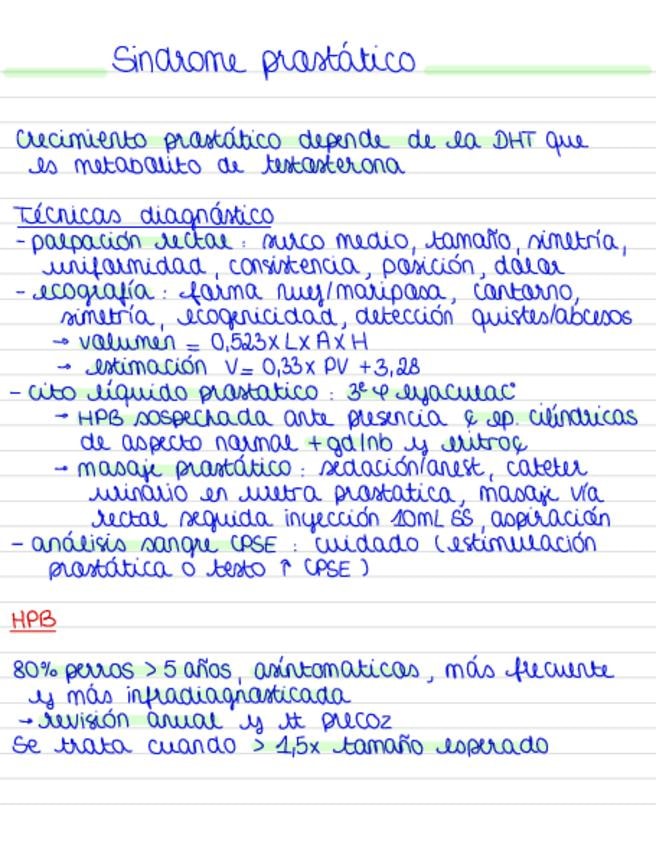 Sindrome prostático
Crecimiento prostático depende de la DHT que
es metabolito de testosterona
Técnicas diagnóstico
- palpación rectal : surco medio, tamaño, simetría,
uniformidad, consistencia, posición, dolor
- ecografía : forma nuez/mariposa, contorno,
simetría, ecogenicidad, detección quistes/abcesos
→ volumen = 0,523 x L x A x H
→ estimación V = 0,33 x PV + 3,28
- cito líquido prostatico : 3e φ eyaculac°
→ HPB sospechada ante presencia ¢ ep. cilíndricas
de aspecto normal + gd/nb y eritro¢
→ masaje prostático : sedación/anest, cateter
urinário en uretra prostatica, masaje vía
rectal seguida inyección 10mL SS, aspiración
- análisis sangre CPSE : cuidado (estimulación
prostática o testo ↑ CPSE)
HPB
80% perros > 5 años, asíntomaticos, más frecuente
y más infradiagnosticada
→ revisión anual y tt precoz
Se trata cuando > 1,5x tamaño esperado